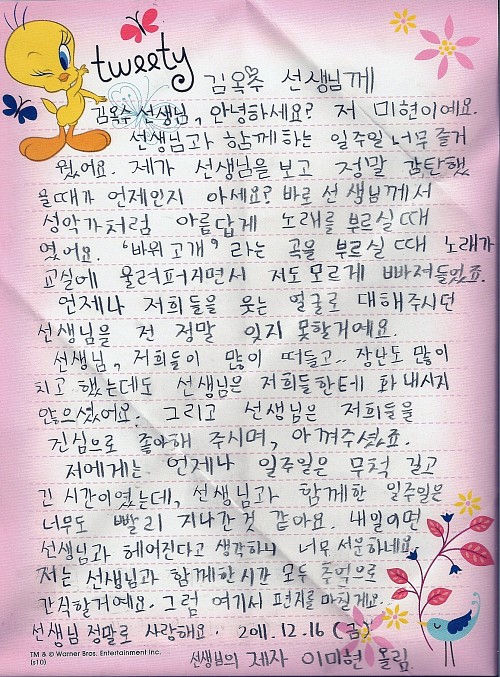 tweety
김옥주 선생님께
김옥주 선생님, 안녕하세요? 저 미현이예요.
선생님과 함께하는 일주일 너무 즐거
웠어요. 제가 선생님을 보고 정말 감탄했
을때가 언제인지 아세요? 바로 선생님께서
성악가처럼 아름답게 노래를 부르실 때
였어요. '바위고개' 라는 곡을 부르실 때 노래가
교실에 울려퍼지면서 저도 모르게 빠져들었죠.
언제나 저희들을 웃는 얼굴로 대해주시던
선생님을 전 정말 잊지 못할거예요.
선생님, 저희들이 많이 떠들고.. 장난도 많이
치고 했는데도 선생님은 저희들한테 화 내시지
않으셨어요. 그리고 선생님은 저희들을
진심으로 좋아해 주시며, 아껴주셨죠.
저에게는 언제나 일주일은 무척 길고
긴 시간이였는데, 선생님과 함께한 일주일은
너무도 빨리 지나간것 같아요. 내일이면
선생님과 헤어진다고 생각하니 너무 서운하네요.
저는 선생님과 함께한 시간 모두 추억으로
간직할거예요. 그럼 여기서 편지를 마칠게요.
선생님 정말로 사랑해요. 2011.12.16 (금)
TM & © Warner Bros. Entertainment Inc.
(s10)
선생님의 제자 이미현 올림.